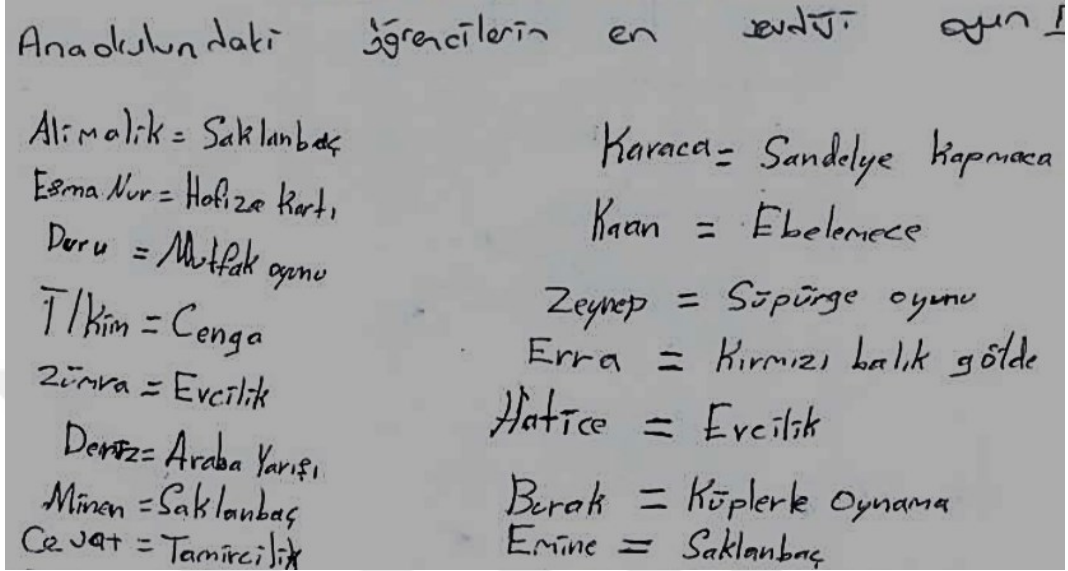 Anaokulundaki öğrencilerin en sevdiği oyun
Alimalik = Saklanbaç
Esma Nur = Hofıza Kartı
Duru = Mutfak oyunu
= Cenga
Zümra = Evcilik
Deniz = Araba Yarışı
Minen = Saklanbaç
Cevat = Tamircilik
Karaca = Sandelye Kapmaca
Kaan = Ebelemece
Zeynep = Süpürge oyunu
Erra = Kırmızı balık gölde
Hatice = Evcilik
Burak = Küplerle Oynama
Emine = Saklanbaç